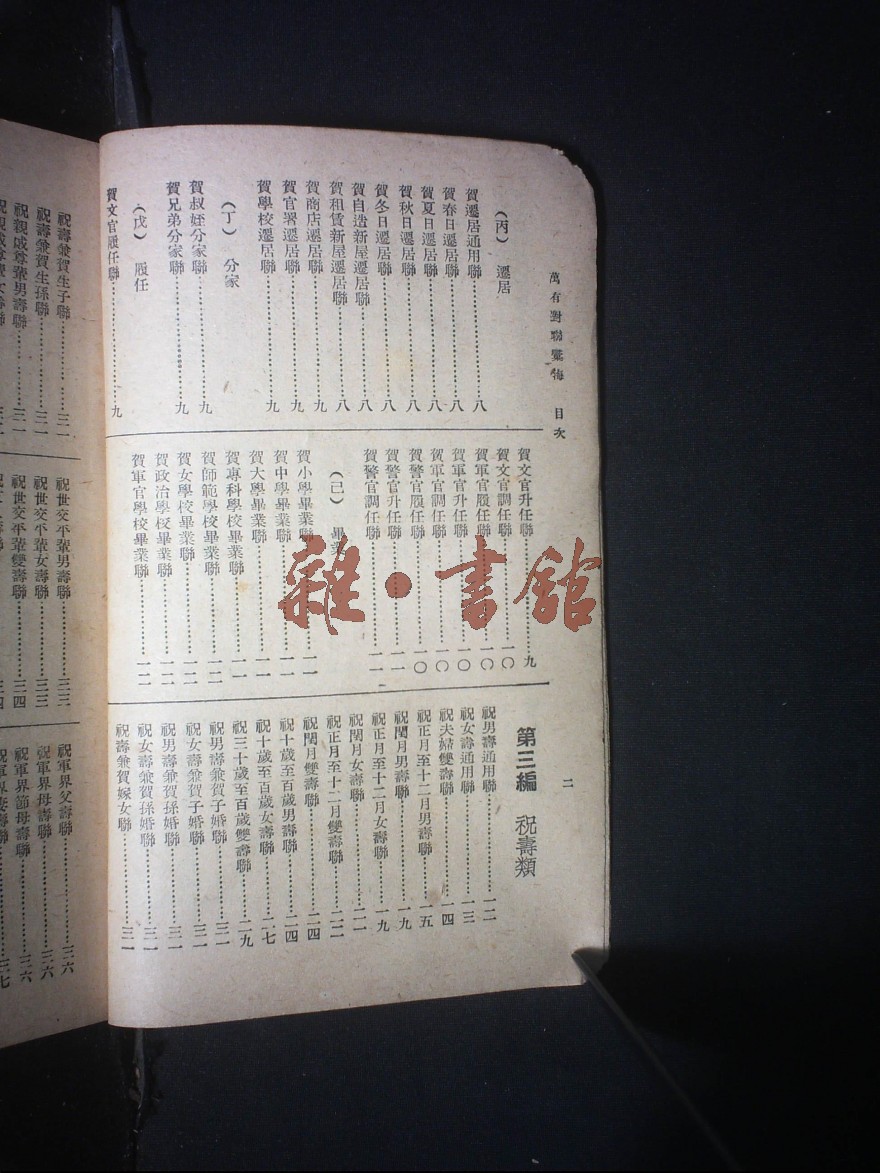 萬有對聯彙海 目次
二
(丙) 遷居
賀遷居通用聯……八
賀春日遷居聯……八
賀夏日遷居聯……八
賀秋日遷居聯……八
賀冬日遷居聯……八
賀自造新屋遷居聯……八
賀租賃新屋遷居聯……八
賀商店遷居聯……九
賀官署遷居聯……九
賀學校遷居聯……九
(丁) 分家
賀叔姪分家聯……九
賀兄弟分家聯……九
(戊) 履任
賀文官履任聯……九
賀文官升任聯……九
賀文官調任聯……一〇
賀軍官履任聯……一〇
賀軍官升任聯……一〇
賀軍官調任聯……一〇
賀警官履任聯……一〇
賀警官升任聯……一一
賀警官調任聯……一一
(己) 畢業
賀小學畢業聯……一一
賀中學畢業聯……一一
賀大學畢業聯……一一
賀專科學校畢業聯……一一
賀師範學校畢業聯……一二
賀女學校畢業聯……一二
賀政治學校畢業聯……一二
賀軍官學校畢業聯……一二
第三編 祝壽類
祝男壽通用聯……一二
祝女壽通用聯……一三
祝夫婦雙壽聯……一四
祝正月至十二月男壽聯……一五
祝閏月男壽聯……一九
祝正月至十二月女壽聯……一九
祝閏月女壽聯……二二
祝正月至十二月雙壽聯……二二
祝閏月雙壽聯……二四
祝十歲至百歲男壽聯……二四
祝十歲至百歲女壽聯……二七
祝三十歲至百歲雙壽聯……二九
祝男壽兼賀子婚聯……三一
祝女壽兼賀子婚聯……三一
祝男壽兼賀孫婚聯……三一
祝女壽兼賀孫婚聯……三一
祝壽兼賀嫁女聯……三一
祝壽兼賀生子聯……三一
祝壽兼賀生孫聯……三一
祝親戚尊輩男壽聯……三一
祝親戚尊輩女壽聯
祝世交平輩男壽聯……三三
祝世交平輩女壽聯……三三
祝世交平輩雙壽聯……三四
祝軍界父壽聯……三六
祝軍界母壽聯……三六
祝軍界節母壽聯……三六
祝軍界妻壽聯……三七
雜·書館